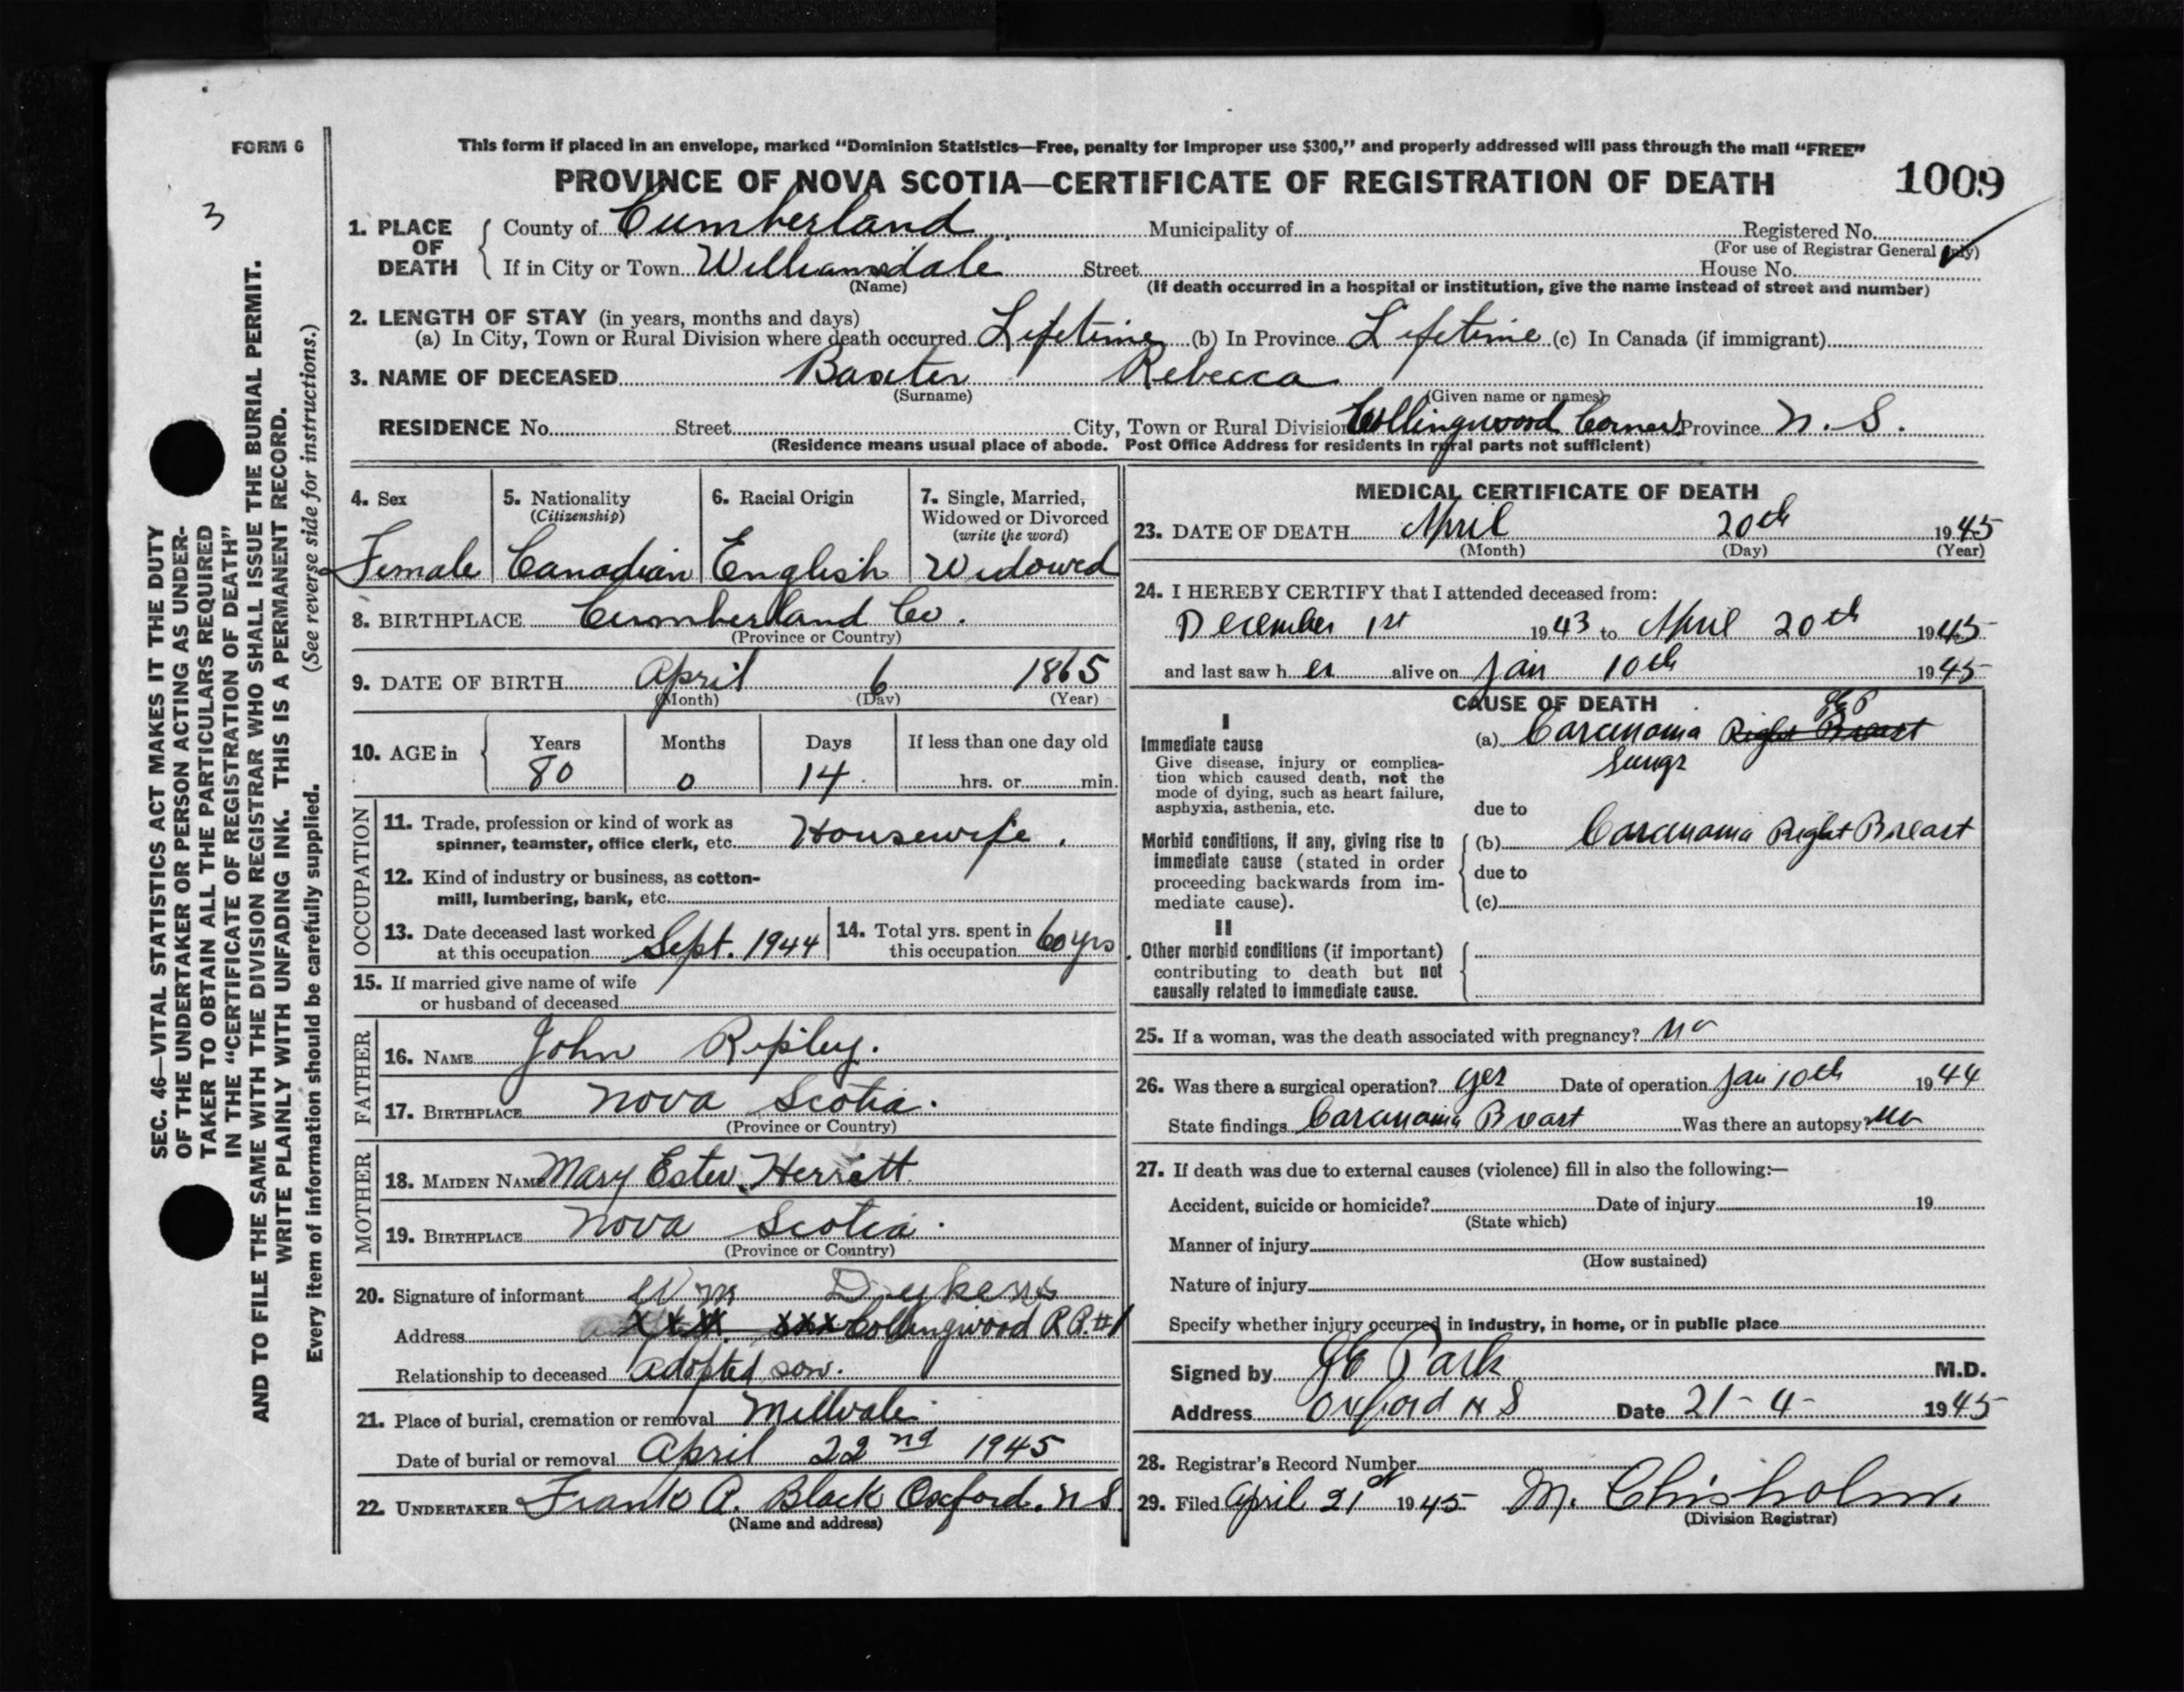 FORM 6
This form if placed in an envelope, marked "Dominion Statistics—Free, penalty for improper use $300," and properly addressed will pass through the mail "FREE"
PROVINCE OF NOVA SCOTIA—CERTIFICATE OF REGISTRATION OF DEATH 1009
3
1. PLACE OF DEATH { County of Cumberland Municipality of Registered No.
(For use of Registrar General only)
If in City or Town Williamsdale Street House No.
(Name) (If death occurred in a hospital or institution, give the name instead of street and number)
2. LENGTH OF STAY (in years, months and days)
(a) In City, Town or Rural Division where death occurred Lifetime (b) In Province Lifetime (c) In Canada (if immigrant)
3. NAME OF DECEASED Baxter Rebecca
(Surname) (Given name or names)
RESIDENCE No. Street City, Town or Rural Division Collingwood Corner Province N. S.
(Residence means usual place of abode. Post Office Address for residents in rural parts not sufficient)
SEC. 46—VITAL STATISTICS ACT MAKES IT THE DUTY
OF THE UNDERTAKER OR PERSON ACTING AS UNDER-
TAKER TO OBTAIN ALL THE PARTICULARS REQUIRED
IN THE "CERTIFICATE OF REGISTRATION OF DEATH"
AND TO FILE THE SAME WITH THE DIVISION REGISTRAR WHO SHALL ISSUE THE BURIAL PERMIT.
WRITE PLAINLY WITH UNFADING INK. THIS IS A PERMANENT RECORD.
Every item of information should be carefully supplied. (See reverse side for instructions.)
4. Sex
Female
5. Nationality
(Citizenship)
Canadian
6. Racial Origin
English
7. Single, Married,
Widowed or Divorced
(write the word)
Widowed
8. BIRTHPLACE Cumberland Co.
(Province or Country)
9. DATE OF BIRTH April 6 1865
(Month) (Day) (Year)
10. AGE in { Years Months Days If less than one day old
80 0 14 hrs. or min.
OCCUPATION
11. Trade, profession or kind of work as
spinner, teamster, office clerk, etc. Housewife.
12. Kind of industry or business, as cotton-
mill, lumbering, bank, etc.
13. Date deceased last worked
at this occupation Sept. 1944
14. Total yrs. spent in
this occupation 60 yrs
15. If married give name of wife
or husband of deceased
FATHER
16. NAME John Ripley.
17. BIRTHPLACE Nova Scotia.
(Province or Country)
MOTHER
18. MAIDEN NAME Mary Ester Herrett
19. BIRTHPLACE Nova Scotia.
(Province or Country)
20. Signature of informant Wm Dykens
Address xxx xxx Collingwood R.R.#1
Relationship to deceased Adopted son.
21. Place of burial, cremation or removal Millvale
Date of burial or removal April 22nd 1945
22. UNDERTAKER Frank A. Black Oxford, N S.
(Name and address)
MEDICAL CERTIFICATE OF DEATH
23. DATE OF DEATH April 20th 1945
(Month) (Day) (Year)
24. I HEREBY CERTIFY that I attended deceased from:
December 1st 1943 to April 20th 1945
and last saw h er alive on Jan 10th 1945
CAUSE OF DEATH
I
Immediate cause
Give disease, injury or complica-
tion which caused death, not the
mode of dying, such as heart failure,
asphyxia, asthenia, etc.
JEP
(a) Carcinoma Right Breast
Lungs
due to
Morbid conditions, if any, giving rise to
immediate cause (stated in order
proceeding backwards from im-
mediate cause).
(b) Carcinoma Right Breast
due to
(c)
II
Other morbid conditions (if important)
contributing to death but not
causally related to immediate cause.
25. If a woman, was the death associated with pregnancy? No
26. Was there a surgical operation? yes Date of operation Jan 10th 1944
State findings Carcinoma Breast Was there an autopsy? No
27. If death was due to external causes (violence) fill in also the following:—
Accident, suicide or homicide? Date of injury 19
(State which)
Manner of injury
(How sustained)
Nature of injury
Specify whether injury occurred in industry, in home, or in public place
Signed by JE Park M.D.
Address Oxford N S Date 21-4- 1945
28. Registrar's Record Number
29. Filed April 21st 1945 M. Chisholm.
(Division Registrar)